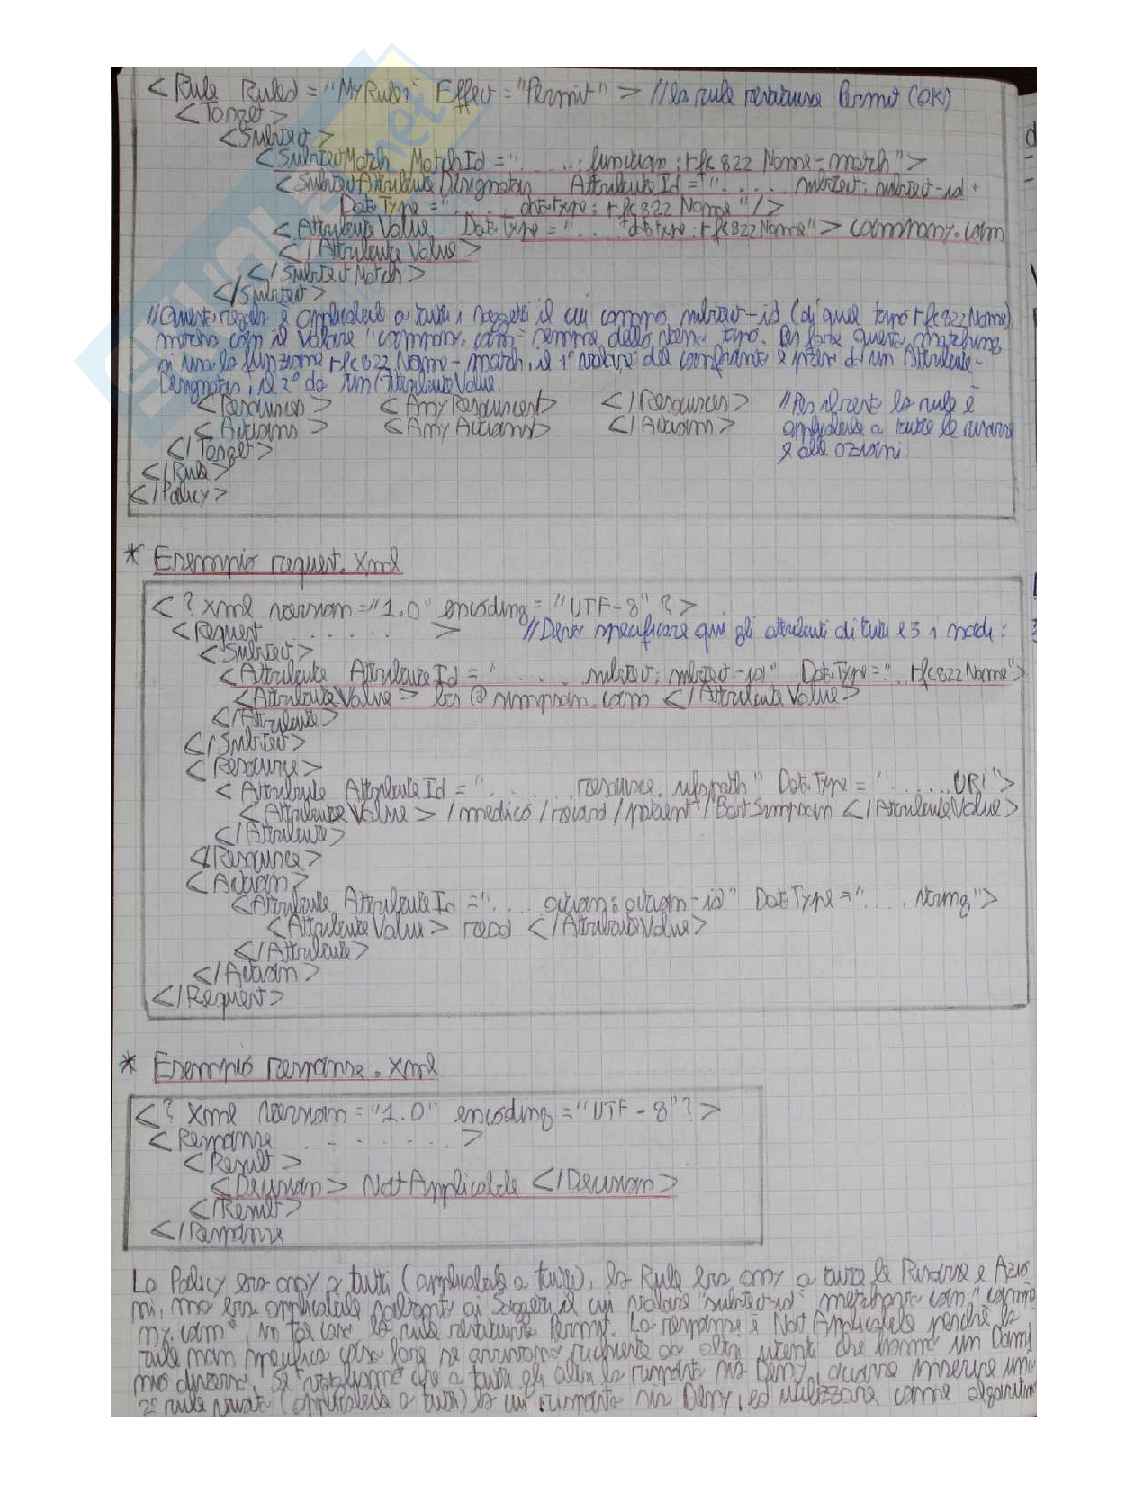 <Rule RuleId = "MyRule" Effect = "Permit" > // la rule restituisce Permit (OK)
<Target>
<Subject>
<SubjectMatch MatchId = "..... function: rfc822Name-match">
<SubjectAttributeDesignator AttributeId = ".... subject: subject-id"
DataType = "..... datatype: rfc822Name" />
<AttributeValue DataType = ".... datatype: rfc822Name"> company.com
</AttributeValue>
</SubjectMatch>
</Subject>
// Questa regola è applicabile a tutti i soggetti il cui campo subject-id (di quel tipo rfc822Name)
matcha con il valore "company.com" sempre dello stesso tipo. Per fare questo matching
si usa la funzione rfc822Name-match, il 1° valore del confronto è preso da un Attribute-
Designator, il 2° da un AttributeValue
<Resources> <AnyResources> </Resources> // Per il resto la rule è
<Actions> <AnyActions> </Actions> applicabile a tutte le risorse
</Target> e alle azioni
</Rule>
</Policy>
* Esempio request.xml
<?xml version="1.0" encoding="UTF-8"?>
<Request ..... > // Devo specificare qui gli attributi di tutti e 3 i nodi:
<Subject>
<Attribute AttributeId = "..... subject: subject-id" DataType = ".. rfc822Name">
<AttributeValue> @simpson.com </AttributeValue>
</Attribute>
</Subject>
<Resource>
<Attribute AttributeId = "..... resource. ufspath" DataType = "......URI">
<AttributeValue> /medico/record/patient/BartSimpson </AttributeValue>
</Attribute>
</Resource>
<Action>
<Attribute AttributeId = ".... action: action-id" DataType = ".... string">
<AttributeValue> read </AttributeValue>
</Attribute>
</Action>
</Request>
* Esempio response.xml
<?xml version="1.0" encoding="UTF-8"?>
<Response ........ >
<Result>
<Decision> NotApplicable </Decision>
</Result>
</Response
La Policy era any a tutti (applicabile a tutti), la Rule era any a tutte le Risorse e Azio
ni, ma era applicabile soltanto ai Soggetti il cui valore "subject-id" matchante con "compa
ny.com", in tal caso la rule restituisce Permit. La response è NotApplicable perché la
rule non specifica cosa fare se arrivano richieste da altri utenti che hanno un Domi
nio diverso. Se vogliamo che a tutti gli altri la risposta sia Deny, occorre inserire una
2° rule vuota (applicabile a tutti) la cui risposta sia Deny, ed utilizzare come algoritmo